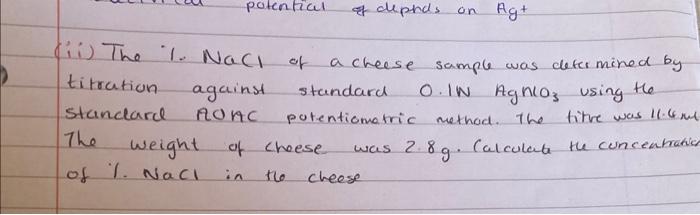 potential & depnds on Ag+
(ii) The %. NaCl of a cheese sample was determined by
titration against standard 0.1N AgNO3 using the
standard AOAC potentiometric method. The titre was 11.6 ml
The weight of cheese was 2.8g. Calculate the concentration
of %. NaCl in the cheese